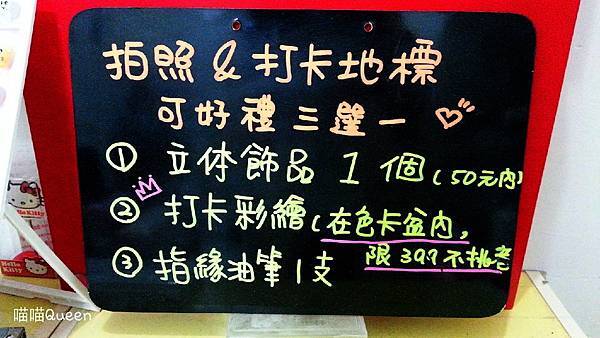 拍照&打卡地標
可好禮三選一
① 立体飾品 1 個(50元內)
② 打卡彩繪(在色卡盆內,
限399不挑色
③ 指緣油筆1支
Hello Kitty
Hello Kitty
喵喵Queen